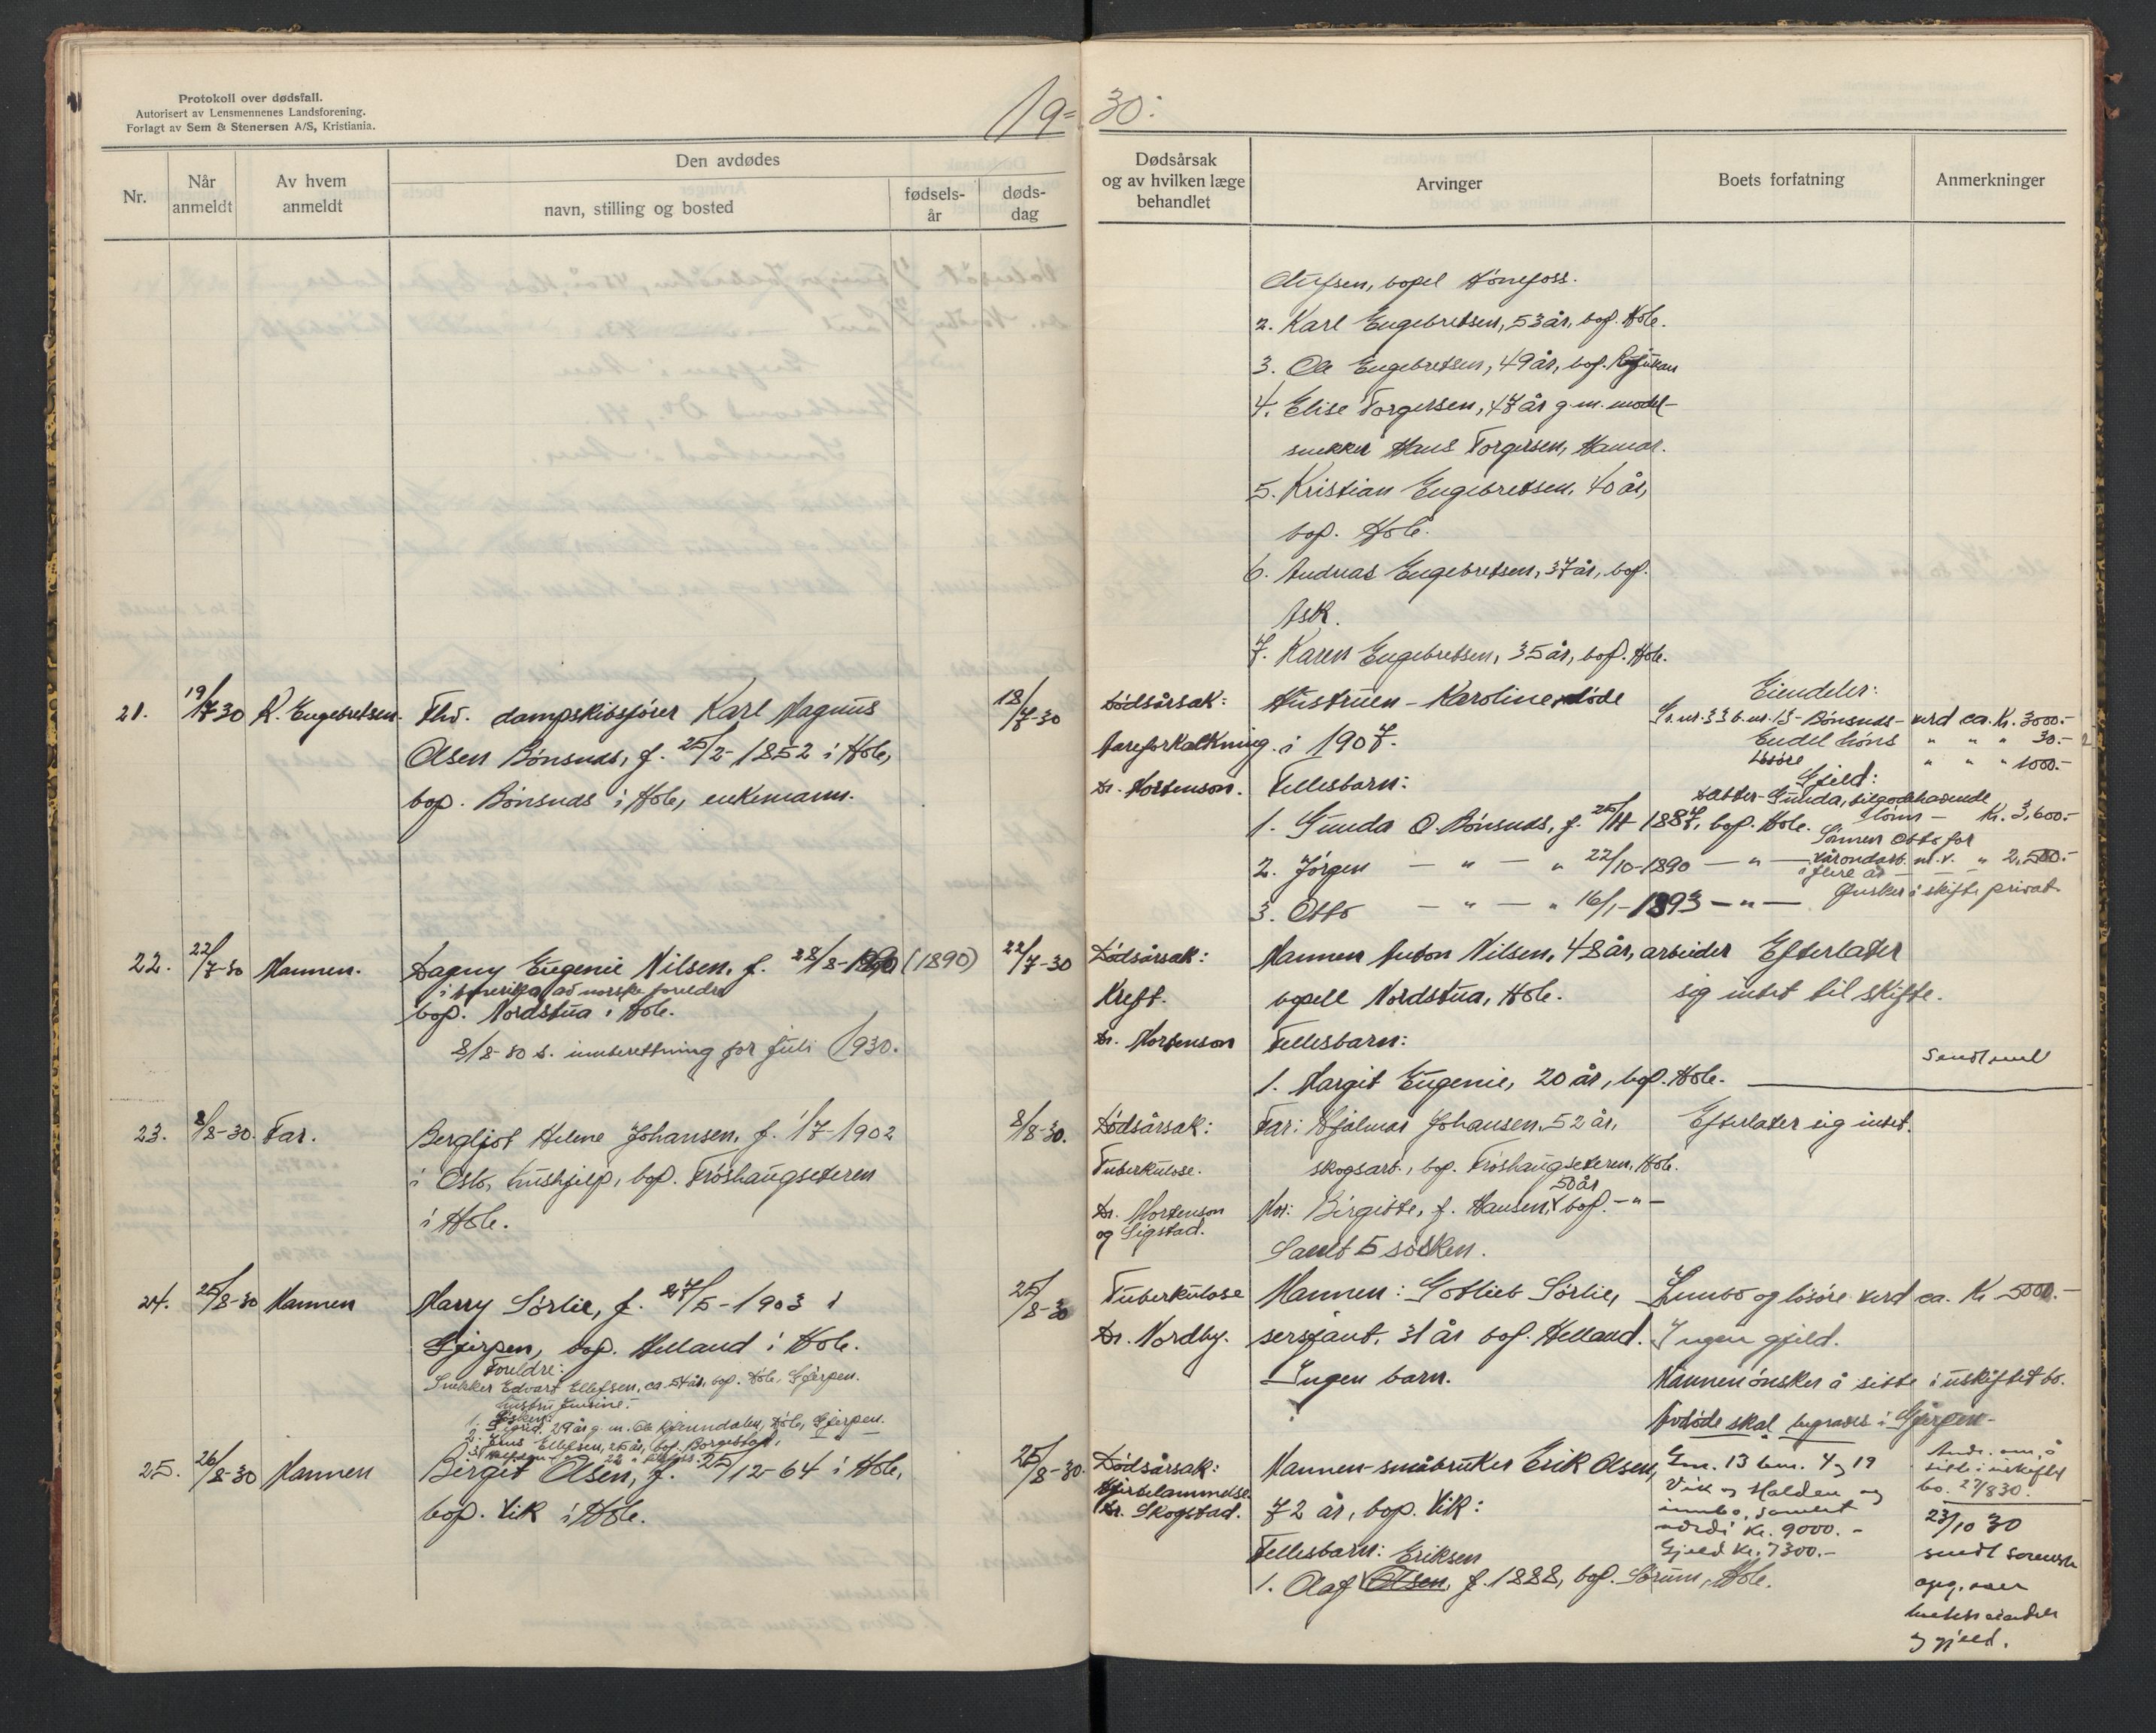 Protokoll over dødsfall.
Autorisert av Lensmennenes Landsforening.
Forlagt av Sem & Stenersen A/S, Kristiania.
19=30:
Nr.
Når anmeldt
Av hvem anmeldt
Den avdødes
navn, stilling og bosted
fødsels-
år
døds-
dag
Dødsårsak
og av hvilken læge
behandlet
Arvinger
Boets forfatning
Anmerkninger
Olufsen, bopel Hønefoss.
2. Karl Engebretsen, 53 år, bop. Hole.
3. Ole Engebretsen, 49 år, bop. Rjukan
4. Elise Torgersen, 47 år g.m. model-
snekker Hans Torgersen, Hamar.
5. Kristian Engebretsen, 40 år,
bop. Hole.
6. Andreas Engebretsen, 37 år, bop.
Ask.
7. Karen Engebretsen, 35 år, bop. Hole.
21. 19/7-30 K. Engebretsen. Fhv. dampskibsfører Karl Magnus
Olsen Bønsnes, f. 25/2-1852 i Hole,
bop. Bønsnes i Hole, enkemann.
18/7-30
Dødsårsak:
Åreforkalkning.
Dr. Mortenson.
Hustruen - Karoline døde
i 1907.
Fellesbarn:
1. Gunda O. Bønsnes, f. 25/4 1887, bop. Hole.
2. Jørgen — " — " 22/10-1890 — " —
3. Otto — " — " 16/1-1893 — " —
Eiendeler:
Gr.nr. 33 b.nr. 13 - Bønsnes - verd ca. Kr. 3000.-
Endel høns " " " 30.-
Løsøre " " " 1000.-
Gjeld:
Datter - Gunda, tilgodehavende
lønn - Kr. 3,600.-
Sønnen Otto for
våronnarb. m.v. " 2,500.-
i flere år
Ønsker å skifte privat
22. 22/7-30 Mannen. Dagny Eugenie Nilsen, f. 28/8-1890 (1890)
i Amerika av norske foreldre
bop. Nordstua i Hole.
8/8-30 s. innberettning for juli 1930.
22/7-30
Dødsårsak:
Kreft.
Dr. Mortenson
Mannen Anton Nilsen, 48 år, arbeider
bopell Nordstua, Hole.
Fellesbarn:
1. Margit Eugenie, 20 år, bop. Hole.
Efterlater
sig intet til skifte.
23. 8/8-30. Far. Bergljot Helene Johansen, f. 1/7-1902
i Oslo, hushjelp, bop. Frøshaugseteren
i Hole.
8/8-30.
Dødsårsak:
Tuberkulose.
Dr. Mortenson
og Sigstad.
Far: Hjalmar Johansen, 52 år,
skogsarb., bop. Frøshaugseteren, Hole.
Mor: Birgitte, f. Hansen, 50 år bop. — " —
Samt 5 søsken.
Efterlater sig intet.
24. 25/8-30 Mannen Marry Sørlie, f. 27/5-1903 i
Gjerpen, bop. Helland i Hole.
Foreldre:
Snekker Edvart Ellefsen, ca. 54 år, bop. Hole, Gjerpen.
Søsken:
1. Sigrid, 29 år g.m. Ole Kjenndalen, Hole, Gjerpen.
2. Jens Ellefsen, 25 år, bop. Borgestad.
25/8-30
Tuberkulose
Dr. Nordby.
Mannen: Gottlieb Sørlie,
sersjant, 31 år bop. Helland.
Ingen barn.
Innbo og løsøre verd ca. Kr 5000.-
Ingen gjeld.
Mannen ønsker å sitte i uskiftet bo.
Avdøde skal begraves i Gjerpen.
25. 26/8-30 Mannen Birgit Olsen, f. 25/12-64 i Hole,
bop. Vik i Hole.
25/8-30.
Dødsårsak:
Hjertelammelse
Dr. Skogstad.
Mannen - småbruker Erik Olsen,
72 år, bop. Vik:
Fellesbarn: Eriksen
1. Olaf Olsen, f. 1888, bop. Sørum, Hole.
Gnr. 13 bnr. 4 og 19
Vik og Halden og
innbo, samlet
verdi kr. 9000.-
Gjeld kr. 7300.-
Andr. om å
sitte i uskiftet
bo. 27/8 30.
23/10 30
sendt sorenskr.
opg. over
boets eiendeler
og gjeld.